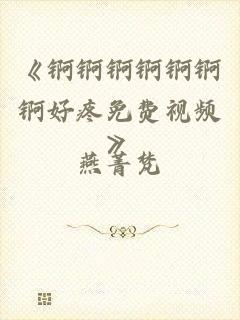 《锕锕锕锕锕锕
锕好疼免费视频
》
燕菁梵